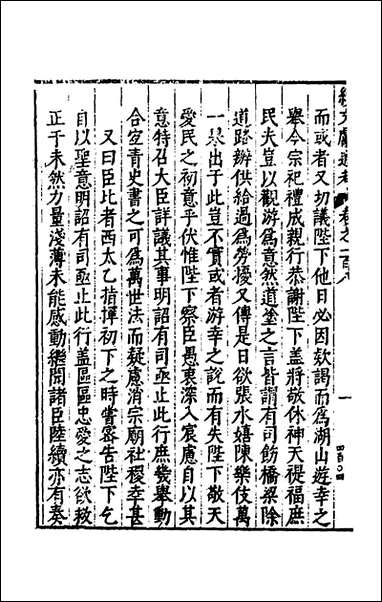 續文獻通考 卷之一百八
一
四百〇四
而或者又切議陛下他日必因欵謁而為湖山遊幸之
舉今宗祀禮成親行恭謝陛下蓋將敬休神天禔福庶
民夫豈以觀游為意然道塗之言皆謂有司飭橋梁除
道路辦供給過為勞擾又傳是日欲張水嬉陳樂伎萬
一果出于此豈不實或者游幸之說而有失陛下敬天
愛民之初意乎伏惟陛下察臣愚衷深入宸慮自以其
意特召大臣詳議其事明詔有司亟止此行庶幾舉動
合宜青史書之可為萬世法而疑慮消宗廟社稷幸甚
又曰臣比者西太乙指揮初下之時嘗密告陛下乞
自以聖意明詔有司亟止此行盖區區忠愛之志欲救
正于未然力量淺薄未能感動繼聞諸臣陸續亦有奏